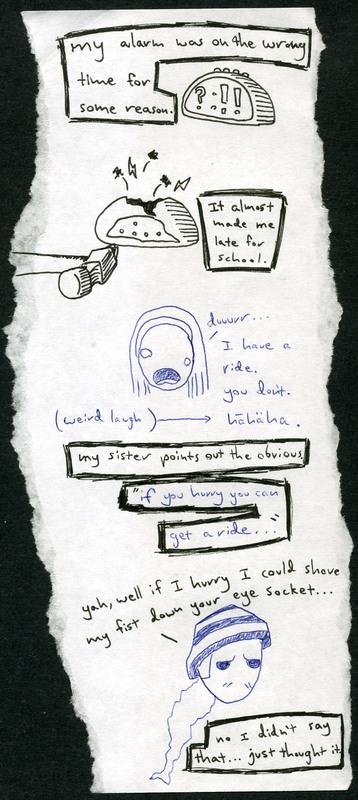 my alarm was on the wrong
time for
some reason.
? : ! !
It almost
made me
late for
school.
duuurr...
I have a
ride.
you don't.
(weird laugh) hahaha.
my sister points out the obvious.
"if you hurry you can
get a ride..."
yah, well if I hurry I could shove
my fist down your eye socket...
no I didn't say
that... just thought it.